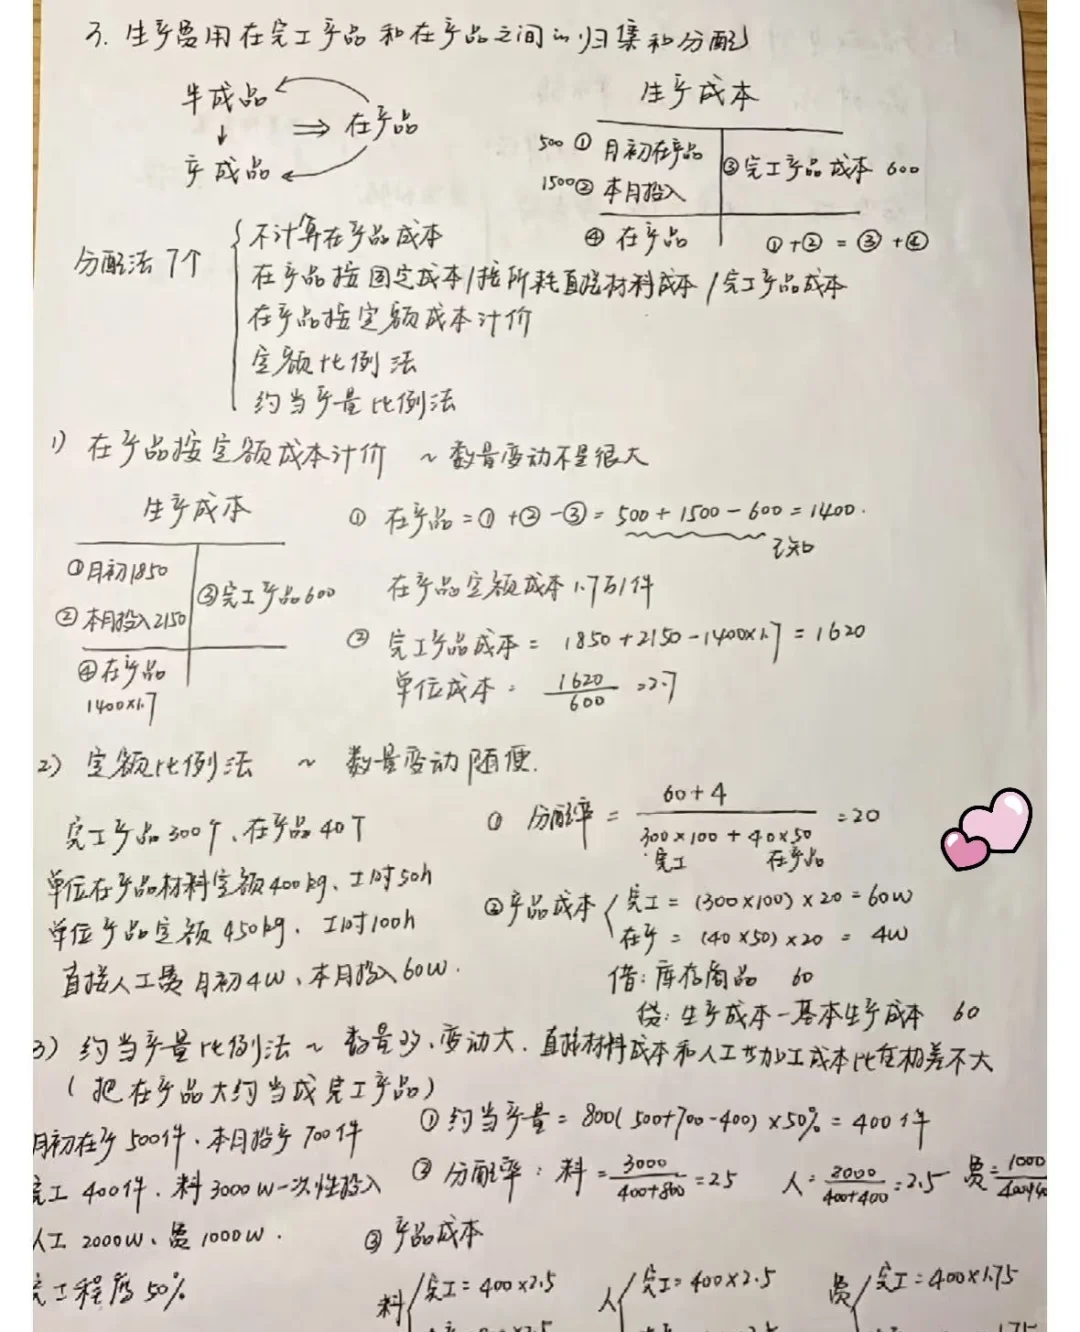 3. 生产费用在完工产品和在产品之间的归集和分配
半成品
↓ ⇒ 在产品
产成品
生产成本
500 ① 月初在产品
1500 ② 本月投入
③ 完工产品成本 600
④ 在产品
①+②=③+④
分配法7个
不计算在产品成本
在产品按固定成本/按所耗直接材料成本/完工产品成本
在产品按定额成本计价
定额比例法
约当产量比例法
1) 在产品按定额成本计价 ~ 数量变动不是很大
生产成本
①月初1850
②本月投入2150
③完工产品600
④在产品
1400×1.7
① 在产品=①+②-③=500+1500-600=1400.
已知
在产品定额成本1.7万/件
② 完工产品成本= 1850+2150-1400×1.7=1620
单位成本= 1620/600 =2.7
2) 定额比例法 ~ 数量变动随便.
完工产品300个、在产品40个
单位在产品材料定额400kg、工时50h
单位产品定额450kg、工时100h
直接人工费月初4W、本月投入60W.
① 分配率= 60+4 / 300×100+40×50 =20
完工 在产品
②产品成本
完工=(300×100)×20=60W
在产=(40×50)×20= 4W
借:库存商品 60
贷:生产成本-基本生产成本 60
3) 约当产量比例法 ~ 数量多、变动大.直接材料成本和人工等加工成本比重相差不大
(把在产品大约当成完工产品)
月初在产500件、本月投产700件
完工400件、料3000W一次性投入
人工2000W、费1000W.
完工程度50%
① 约当产量=800(500+700-400)×50%=400件
② 分配率:料= 3000/400+800 =25 人= 2000/400+400 =2.5 费= 1000
③ 产品成本
料 完工=400×2.5
人 完工=400×2.5
费 完工=400×1.75